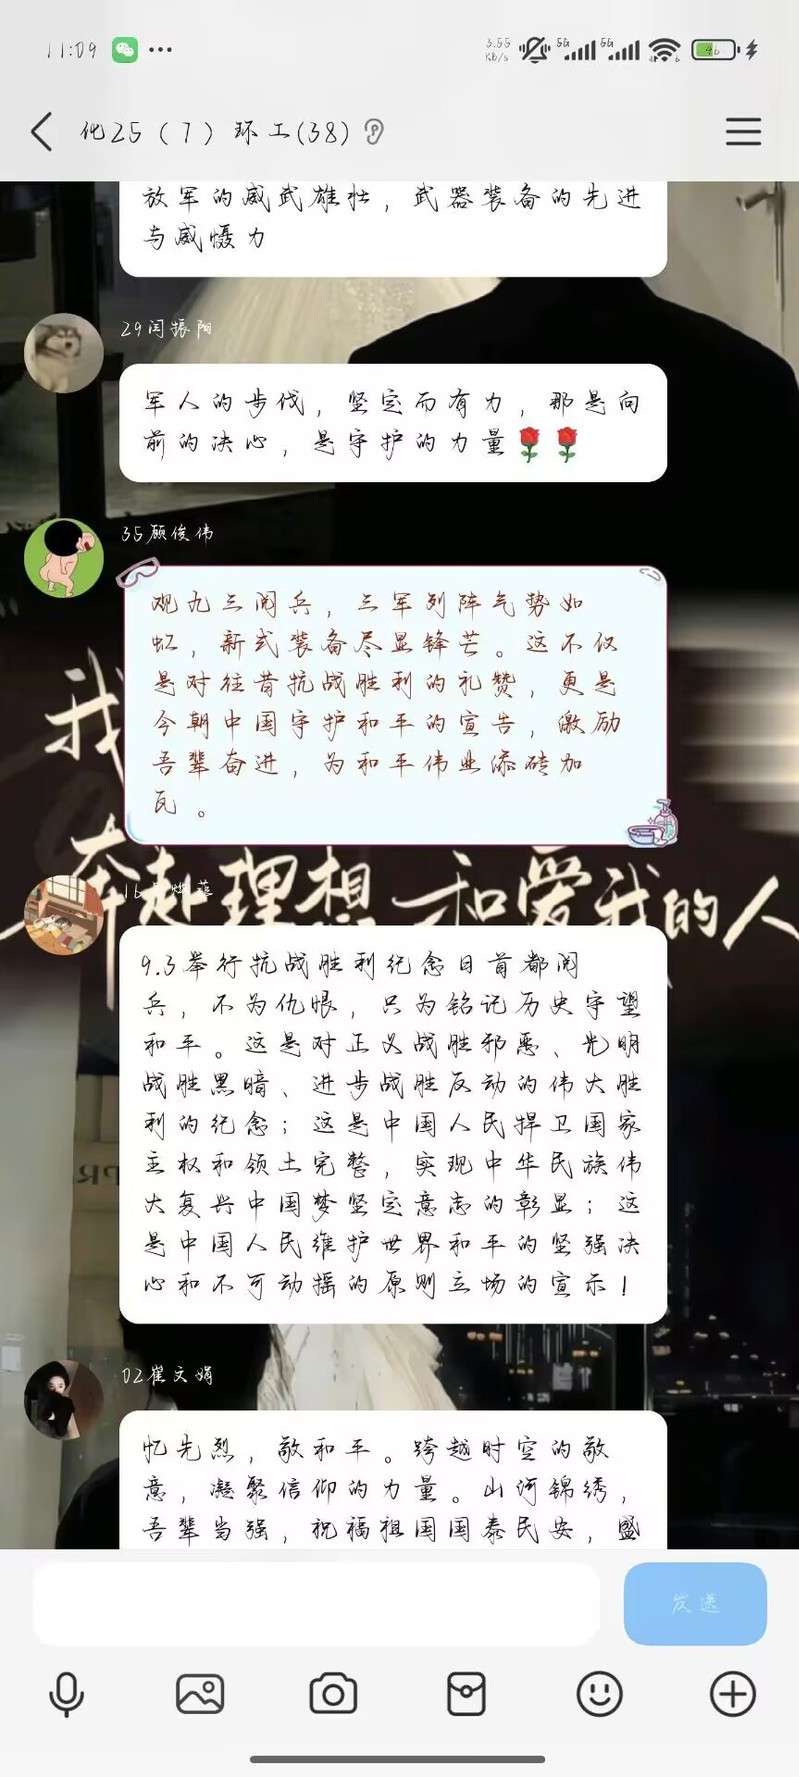 11:09
3.55
KB/s
5G
5G
6
46
化25(7)环工(38)
放军的威武雄壮，武器装备的先进
与威慑力
29闫振阳
军人的步伐，坚定而有力，那是向
前的决心，是守护的力量🌹🌹
35顾俊伟
观九三阅兵，三军列阵气势如
虹，新式装备尽显锋芒。这不仅
是对往昔抗战胜利的礼赞，更是
今朝中国守护和平的宣告，激励
吾辈奋进，为和平伟业添砖加
瓦。
我
奔赴理想和爱我的人
16
9.3举行抗战胜利纪念日首都阅
兵，不为仇恨，只为铭记历史守望
和平。这是对正义战胜邪恶、光明
战胜黑暗、进步战胜反动的伟大胜
利的纪念；这是中国人民捍卫国家
主权和领土完整，实现中华民族伟
大复兴中国梦坚定意志的彰显；这
是中国人民维护世界和平的坚强决
心和不可动摇的原则立场的宣示！
02崔文娟
忆先烈，敬和平。跨越时空的敬
意，凝聚信仰的力量。山河锦绣，
吾辈当强，祝福祖国国泰民安，盛
发送